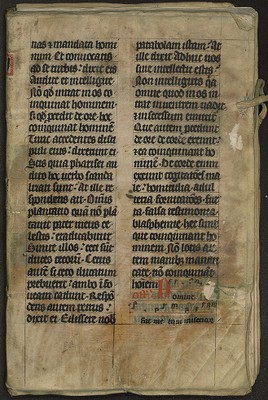 nas & mandata homi
num. Et convocatis
ad se turbis: dixit eis
Audite et intelligite
qd intrat in os co
inquinat hominem
sz qd procedit de ore hoc
coinquinat hominē
Tunc accedentes disci
puli eius: dixerunt ei
Scis quia pharisei au
dito hoc verbo scanda
lizati sunt. At ille re
spondens ait. Omnis
plantatio quā nō plā
tavit pater meus ce
lestis: eradicabitur
Sinite illos: ceci sūt
duces cecorū. Cecus
autē si ceco ducatum
prebuerit: ambo ī fo
veam cadunt. Respō
dens autem petrus
dixit ei Edissere nob
parabolam istam. At
ille dixit Adhuc vos
sine intellectu estis.
Non intelligitis qa
omne quod in os in
trat in ventrem vadit
& in secessum emittit
Que autem procedunt
de ore de corde exeunt
& ea coinquinant ho
minē. De corde enim
exeunt cogitatōes ma
le: homicidia adul
teria fornicatōes fur
ta falsa testimonia
blasphemie hec sunt
que coinquinant ho
minem. Nō lotis au
tem manibz mandu
care: nō coinquinat
hoiem